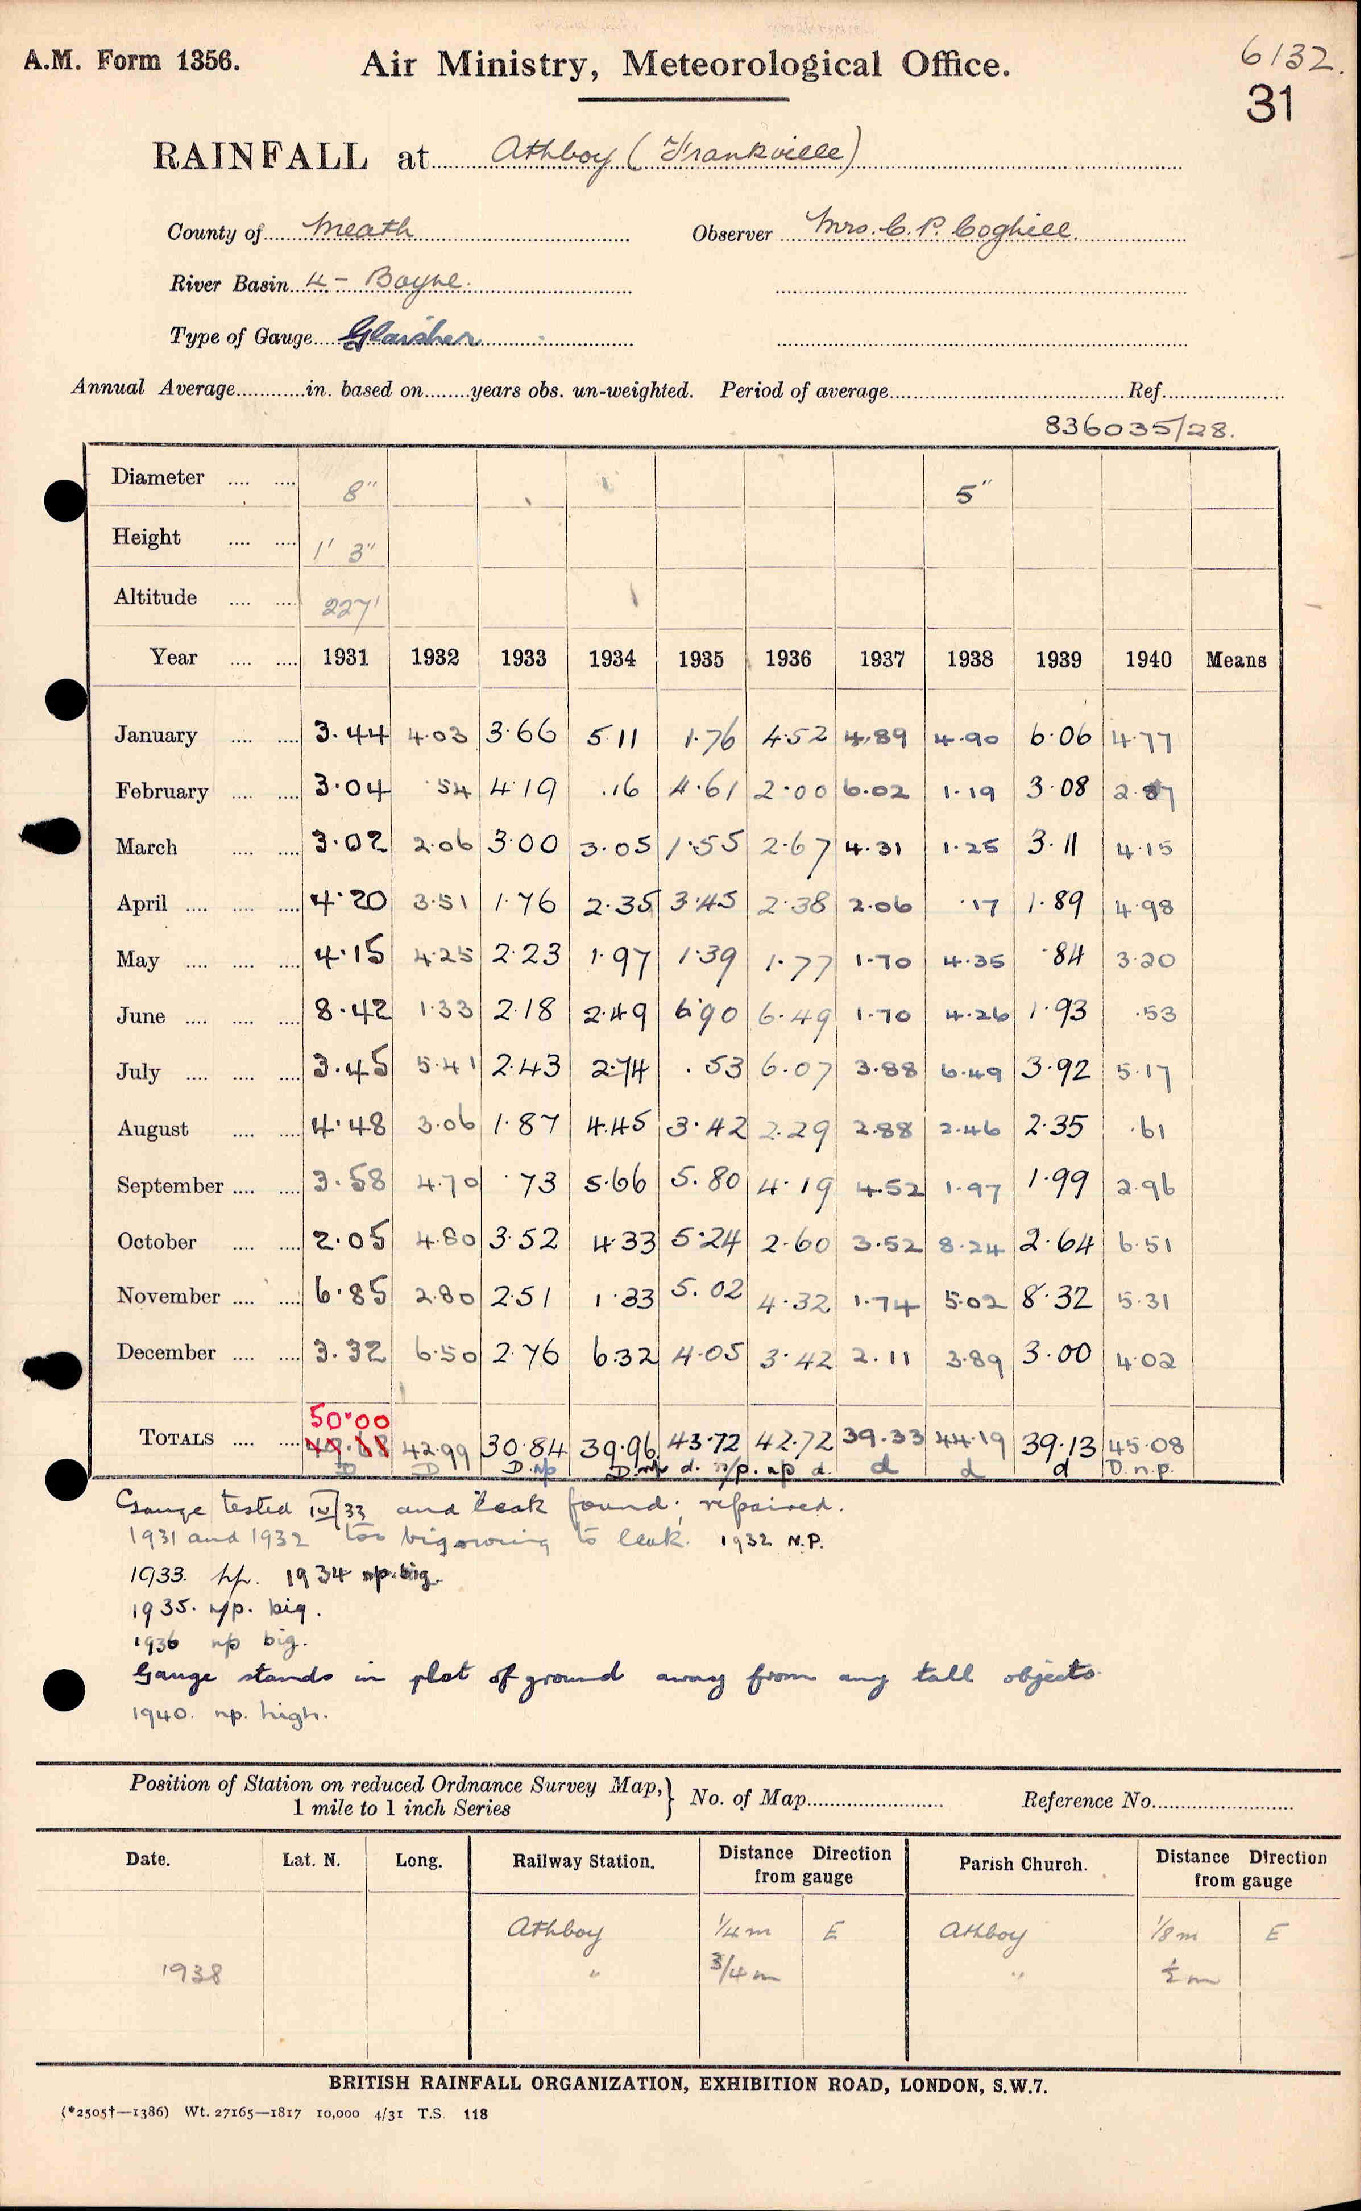 A.M. Form 1356.
Air Ministry, Meteorological Office.
6132.
31
RAINFALL at Athboy (Frankville)
County of Meath Observer Mrs. C. P. Coghill
River Basin 4 - Boyne.
Type of Gauge Glaisher
Annual Average............in. based on........years obs. un-weighted. Period of average............ Ref............
836035/28.
Diameter .... .... 8" 5"
Height .... .... 1' 3"
Altitude .... .... 227'
Year .... .... 1931 1932 1933 1934 1935 1936 1937 1938 1939 1940 Means
January .... .... 3.44 4.03 3.66 5.11 1.76 4.52 4.89 4.90 6.06 4.77
February .... .... 3.04 .54 4.19 .16 4.61 2.00 6.02 1.19 3.08 2.87
March .... .... 3.02 2.06 3.00 3.05 1.55 2.67 4.31 1.25 3.11 4.15
April .... .... .... 4.20 3.51 1.76 2.35 3.45 2.38 2.06 .17 1.89 4.98
May .... .... .... 4.15 4.25 2.23 1.97 1.39 1.77 1.70 4.35 .84 3.20
June .... .... .... 8.42 1.33 2.18 2.49 6.90 6.49 1.70 4.26 1.93 .53
July .... .... .... 3.45 5.41 2.43 2.74 .53 6.07 3.88 6.49 3.92 5.17
August .... .... 4.48 3.06 1.87 4.45 3.42 2.29 2.88 2.46 2.35 .61
September .... .... 3.58 4.70 .73 5.66 5.80 4.19 4.52 1.97 1.99 2.96
October .... .... 2.05 4.80 3.52 4.33 5.24 2.60 3.52 8.24 2.64 6.51
November .... .... 6.85 2.80 2.51 1.33 5.02 4.32 1.74 5.02 8.32 5.31
December .... .... 3.32 6.50 2.76 6.32 4.05 3.42 2.11 3.89 3.00 4.02
50.00
TOTALS .... .... 42.99 30.84 39.96 43.72 42.72 39.33 44.19 39.13 45.08
D D D np D np d. n/p. np d. d d d D.n.p.
Gauge tested IV/33 and leak found; repaired.
1931 and 1932 too big owing to leak. 1932 N.P.
1933. n/p. 1934 np. big.
1935. n/p. big.
1936 np big.
Gauge stands in plot of ground away from any tall objects.
1940. np. high.
Position of Station on reduced Ordnance Survey Map, 1 mile to 1 inch Series } No. of Map............ Reference No............
Date. Lat. N. Long. Railway Station. Distance Direction from gauge Parish Church. Distance Direction from gauge
Athboy 1/4 m E Athboy 1/8 m E
1938 " 3/4 m " 1/2 m
BRITISH RAINFALL ORGANIZATION, EXHIBITION ROAD, LONDON, S.W.7.
(*2505†—1386) Wt. 27165—1817 10,000 4/31 T.S. 118